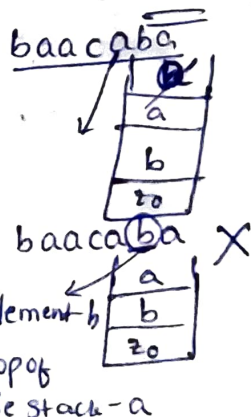 baacaba
a
b
z0
baacaba X
a
lement b
b
z0
op of
e stack - a